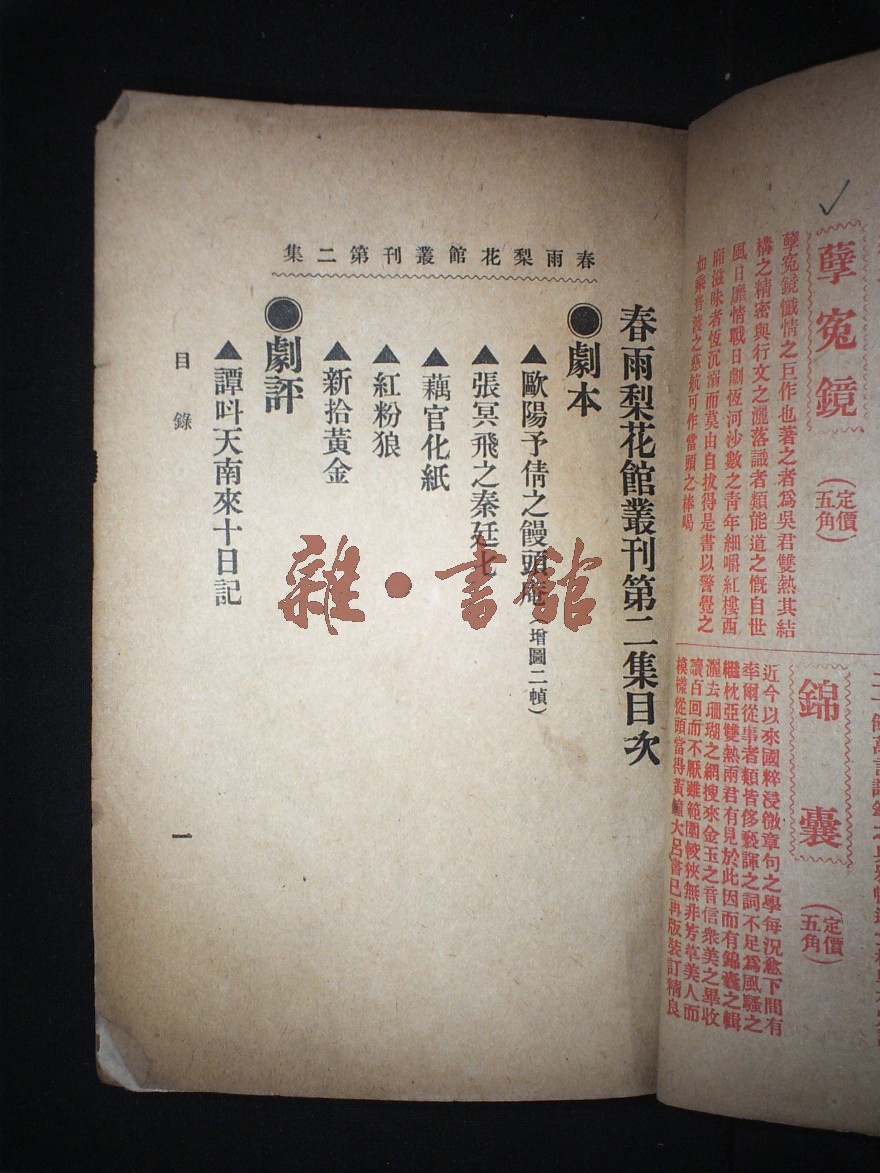 春雨梨花館叢刊第二集
春雨梨花館叢刊第二集目次
●劇本
▲歐陽予倩之饅頭庵（增圖二幀）
▲張冥飛之秦廷七
▲藕官化紙
▲紅粉狼
▲新拾黃金
●劇評
▲譚呌天南來十日記
目錄
一
雜·書館
孽冤鏡
（定價五角）
孽寃鏡懺情之巨作也著之者爲吳君雙熱其結
構之精密與行文之灑落識者類能道之慨自世
風日靡情戰日劇恆河沙數之青年細嚼紅樓西
廂滋味者恆沉溺而莫由自拔得是書以警覺之
如乘普渡之慈航可作當頭之棒喝
錦囊
（定價五角）
近今以來國粹浸微章句之學每況愈下間有
率爾從事者類皆侈褻諢之詞不足爲風騷之
繼枕亞雙熱兩君有見於此因而有錦囊之輯
灑去珊瑚之網搜來金玉之音信衆美之畢收
讀百回而不厭雖範圍較狹無非芳草美人而
模樣從頭當得黃鐘大呂書已再版裝訂精良